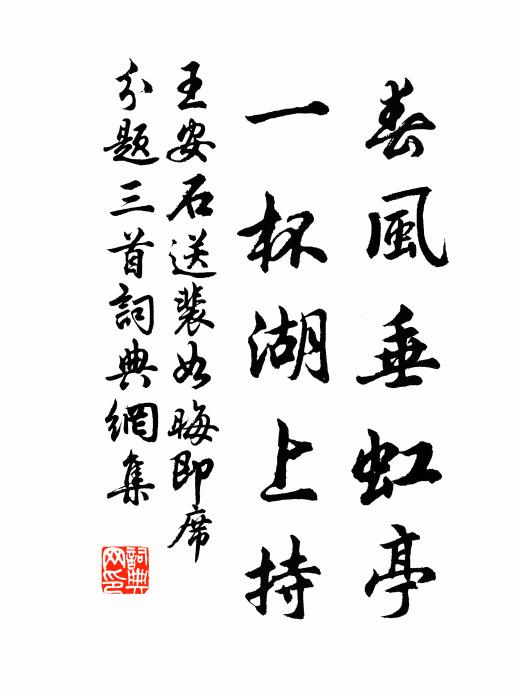 春風垂虹亭
一杯湖上持
王安石送裴如晦即席
分題三首詞典網集
詞典
网印